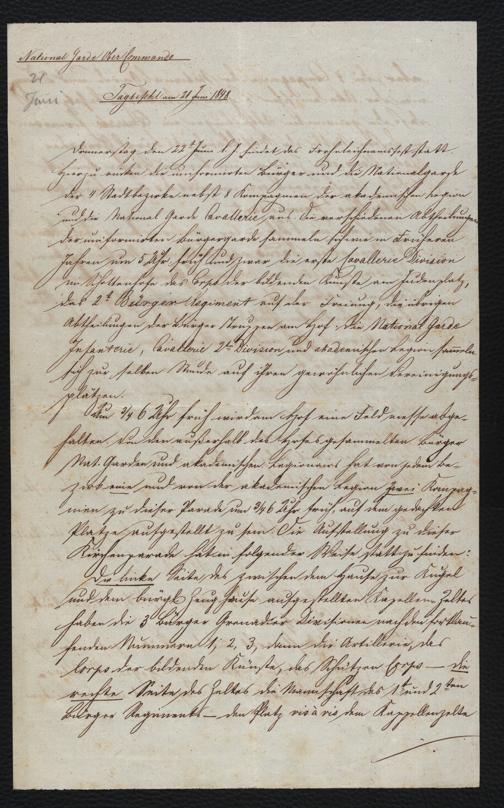 National Garde Ober Commando
21
Juni
Tagbefehl am 21 Juni 1848.
Donnerstag den 22t Juni l. J. findet das Frohnleichnamsfest statt.
Hierzu rücken die uniformirten Bürger und die Nationalgarde
der 4 Stadtbezirke nebst 8 Kompagnien der akademischen Legion
und der National Garde Cavallerie aus. Die verschiedenen Abtheilungen
der uniformirten Bürgergarde sammeln sich wie in früheren
Jahren um 5 Uhr früh und zwar die erste Cavallerie Division
im Schottenhofe das Corps der bildenden Künste am Judenplatz,
das 2t Bürger Regiment auf der Freiung, die übrigen
Abtheilungen der Bürger Truppen am Hof. Die National Garde
Infanterie, Cavallerie 2te Division und akademischen Legion sammeln
sich zur selben Stunde auf ihren gewöhnlichen Vereinigungs-
plätzen.
Um 3/4 6 Uhr früh wird am Hof eine Feldmesse abge-
halten. Von den außerhalb des Hofes gesammelten Bürger
Nat. Garden und akademischen Legionairs hat von jedem Be-
zirk eine und von der akademischen Legion zwei Kompag-
nien zu dieser Parade um 3/4 6 Uhr früh auf dem gedachten
Platze aufgestellt zu sein. Die Aufstellung zu dieser
Kirchenparade hat in folgender Weise statt zu finden:
Die linke Seite des zwischen dem Hause zur Kugel
und dem bürgl. Zeughause aufgestellten Kapellen Zeltes
haben die 3 Bürger Grenadier Divisionen nach den fortlau-
fenden Nummern 1, 2, 3, dann die Artillerie, das
Corps der bildenden Künste, das Schützen Corps — die
rechte Seite des Zeltes die Mannschaft des 1t und 2ten
Bürger Regiments — den Platz vis à vis dem Kappellenzelte